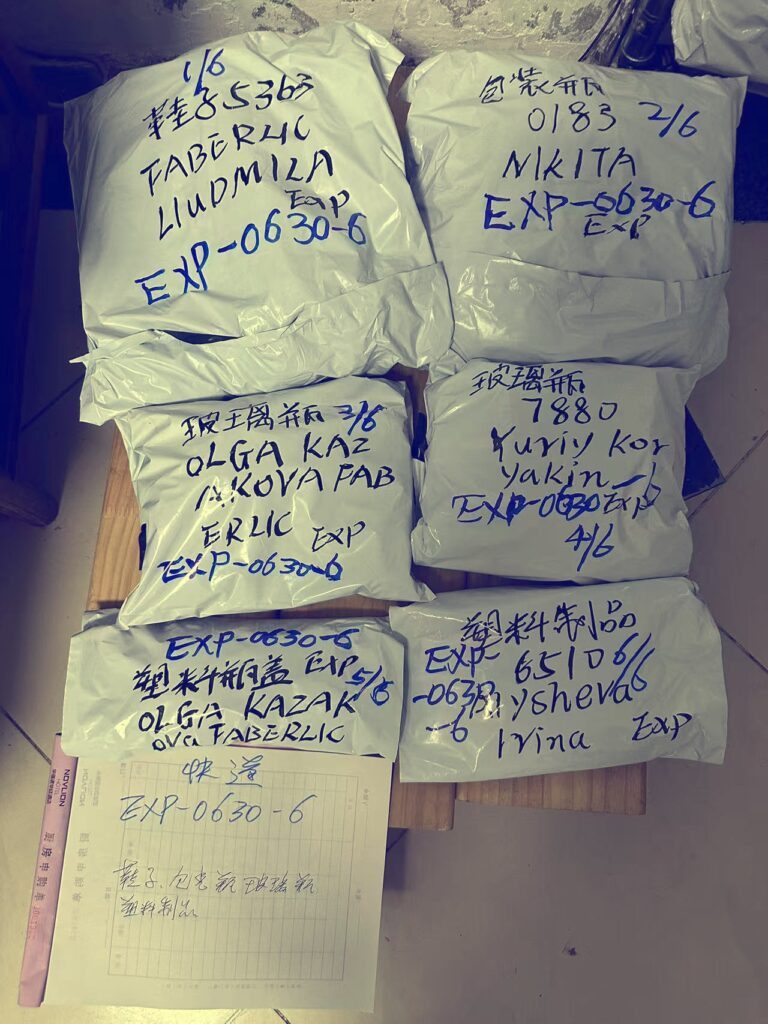 1/6
鞋子5363
FABERLIC
LIUDMILA
Exp
EXP-0630-6
包装瓶
0183 2/6
NIKITA
EXP-0630-6
EXP
玻璃瓶 3/6
OLGA KAZ
AKOVA FAB
ERLIC EXP
EXP-0630-6
玻璃瓶
7880
Yuriy Kor
yakin
EXP-0630-6 Exp
4/6
EXP-0630-6
塑料瓶盖 EXP 5/6
OLGA KAZAK
ova FABERLIC
塑料制品
EXP-0630-6
6510 6/6
ysheva
Irina Exp
快道
EXP-0630-6
鞋子、包装瓶 玻璃瓶
塑料制品
NOVLION